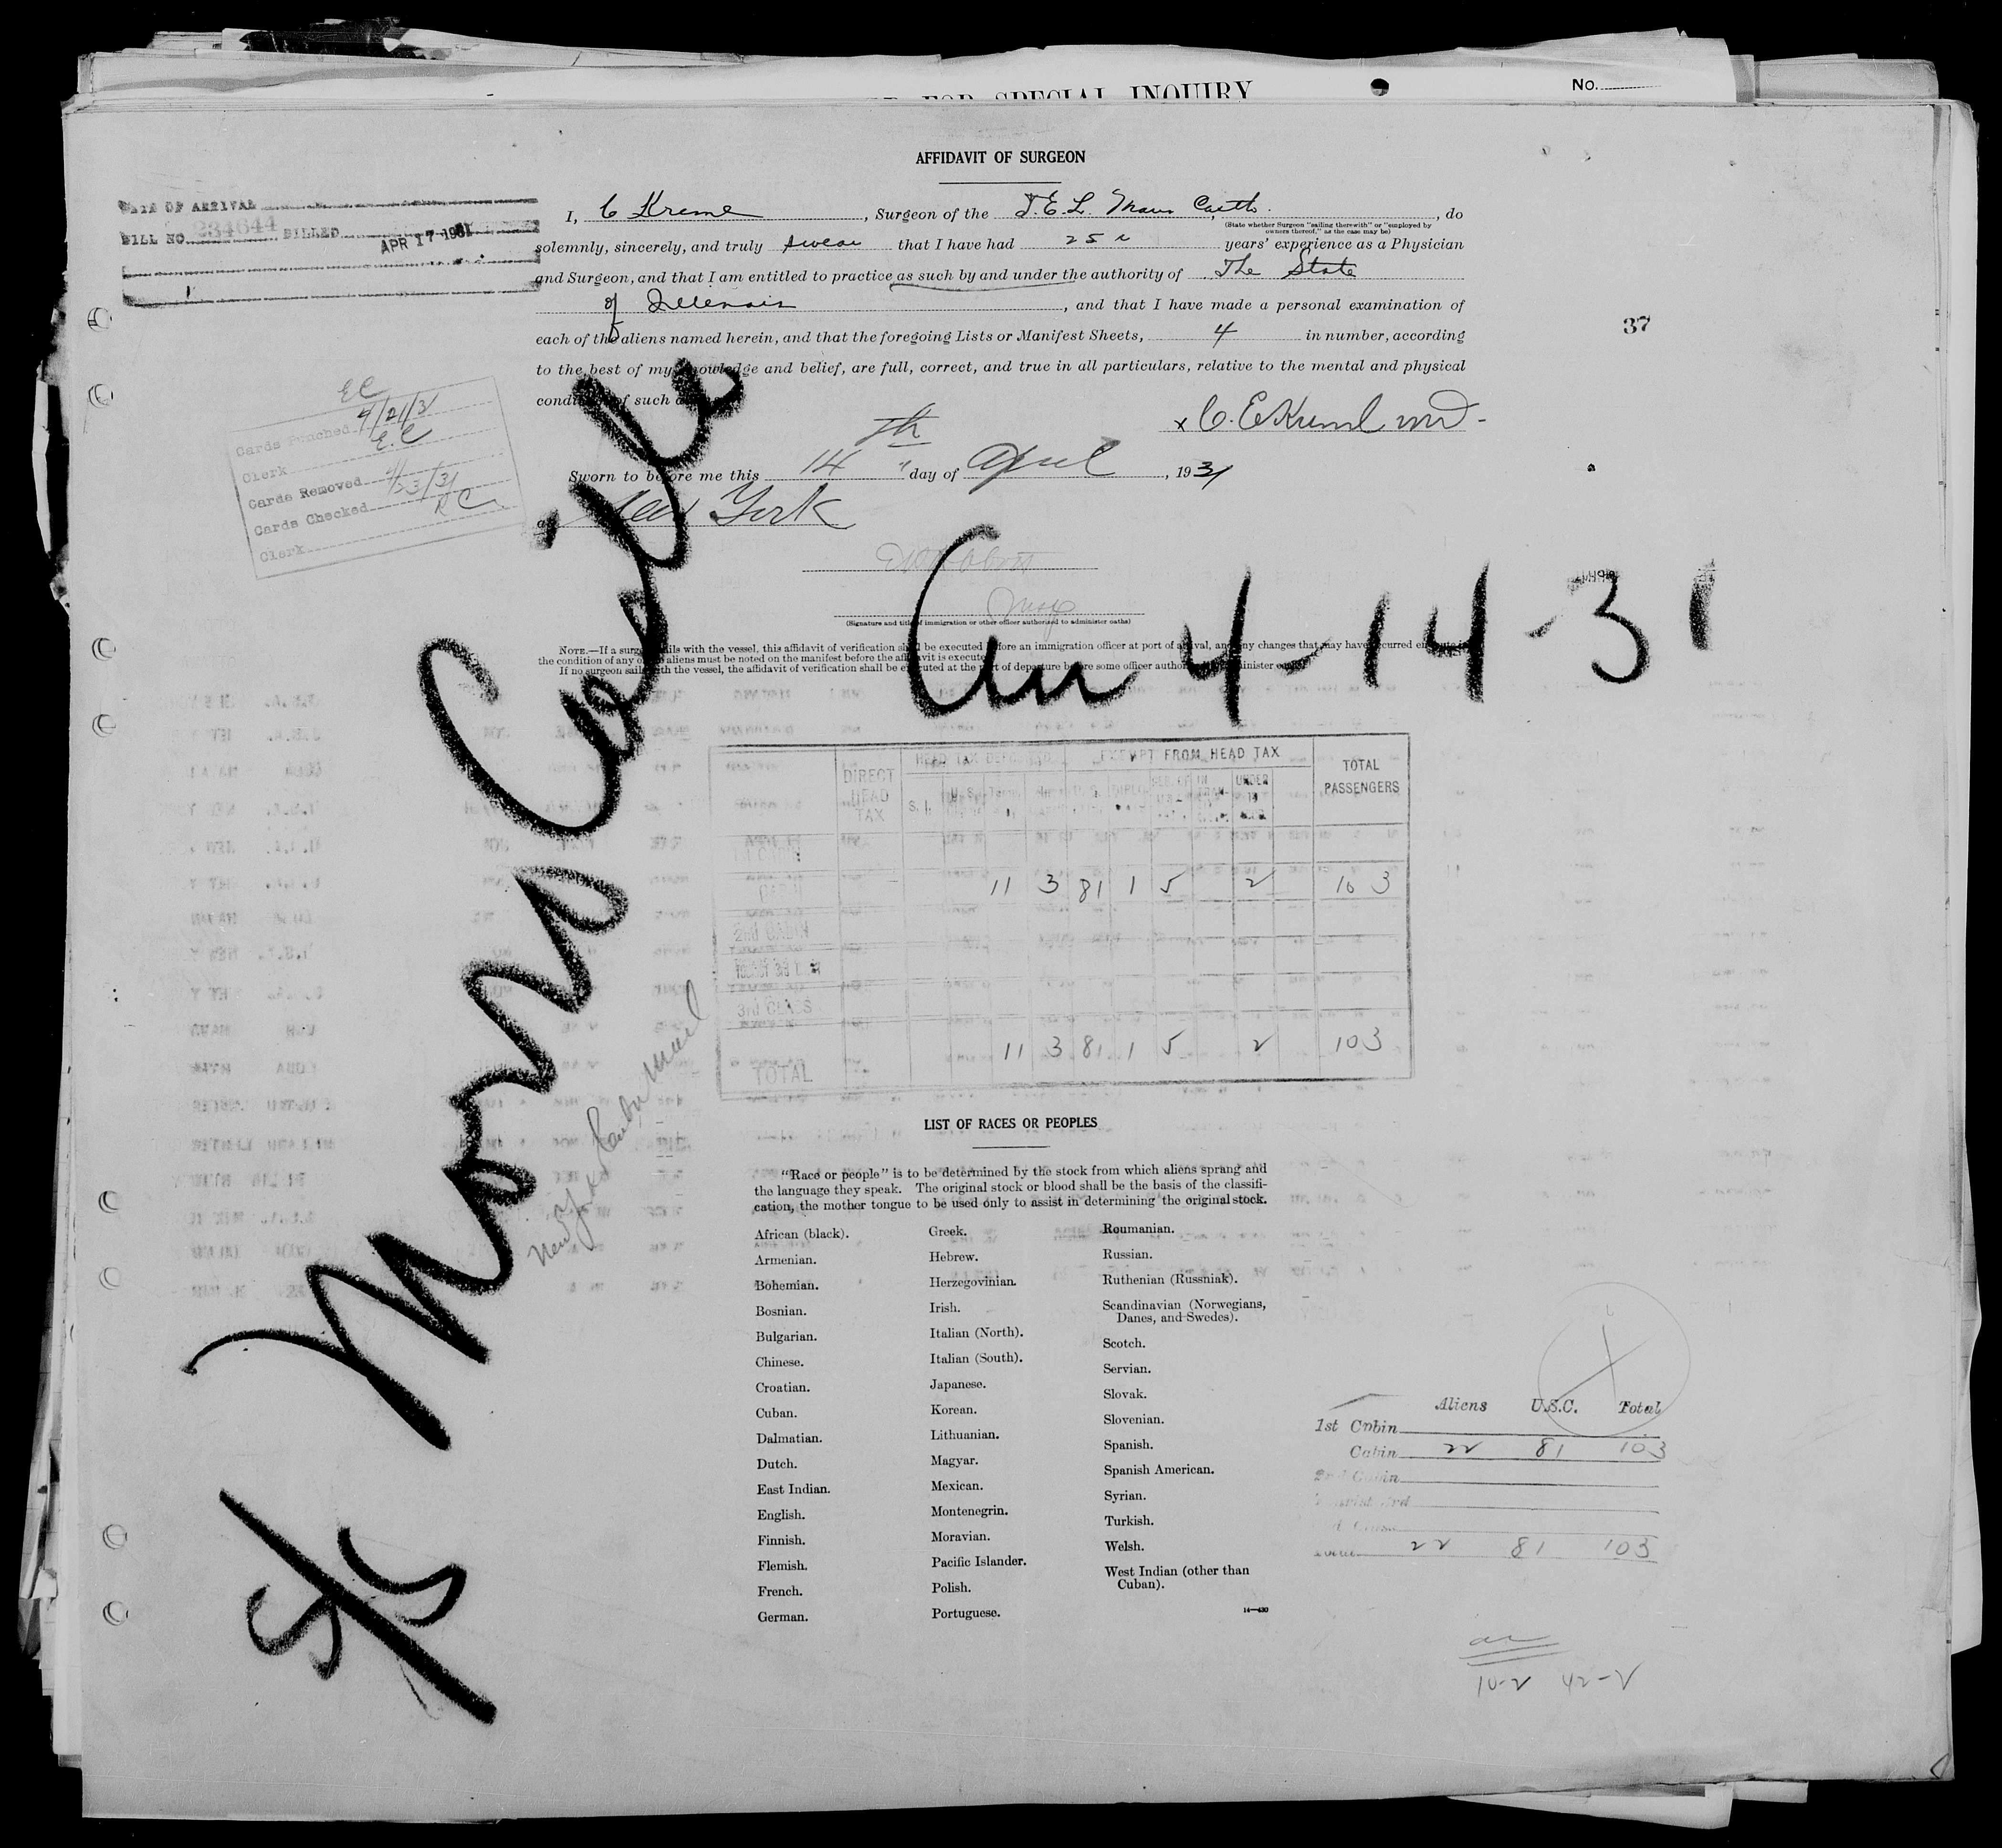 FOR SPECIAL INQUIRY
No.
AFFIDAVIT OF SURGEON
DATE OF ARRIVAL
BILL NO. 234644 BILLED APR 17 1931
I, C Kreml, Surgeon of the T.E.L. Morro Castle, do
(State whether Surgeon "sailing therewith" or "employed by owners thereof," as the case may be)
solemnly, sincerely, and truly swear that I have had 25 years' experience as a Physician
and Surgeon, and that I am entitled to practice as such by and under the authority of The State
of Illenois, and that I have made a personal examination of
each of the aliens named herein, and that the foregoing Lists or Manifest Sheets, 4 in number, according
to the best of my knowledge and belief, are full, correct, and true in all particulars, relative to the mental and physical
condition of such
37
x C. E Kreml MD-
Sworn to before me this 14 th day of April, 1931
at New York
EC
Cards Punched 4/21/31
Clerk E.C
Cards Removed 4/23/31
Cards Checked RC
Clerk
(Signature and title of immigration or other officer authorized to administer oaths)
NOTE.—If a surgeon sails with the vessel, this affidavit of verification shall be executed before an immigration officer at port of arrival, and any changes that may have occurred
the condition of any of aliens must be noted on the manifest before the affidavit is executed
If no surgeon sails with the vessel, the affidavit of verification shall be executed at the port of departure before some officer authorized administer
S/S Morro Castle
Arr 4-14-31
New York & Cuba Mail
DIRECT HEAD TAX
HEAD TAX DEPOSITED
EXEMPT FROM HEAD TAX
TOTAL PASSENGERS
S. I. U. S. DIPLO UNDER 16
1ST CABIN
CABIN 11 3 81 1 5 2 103
2ND CABIN
TOURIST 3RD
3RD CLASS
TOTAL 11 3 81 1 5 2 103
LIST OF RACES OR PEOPLES
"Race or people" is to be determined by the stock from which aliens sprang and
the language they speak. The original stock or blood shall be the basis of the classifi-
cation, the mother tongue to be used only to assist in determining the original stock.
African (black).
Armenian.
Bohemian.
Bosnian.
Bulgarian.
Chinese.
Croatian.
Cuban.
Dalmatian.
Dutch.
East Indian.
English.
Finnish.
Flemish.
French.
German.
Greek.
Hebrew.
Herzegovinian.
Irish.
Italian (North).
Italian (South).
Japanese.
Korean.
Lithuanian.
Magyar.
Mexican.
Montenegrin.
Moravian.
Pacific Islander.
Polish.
Portuguese.
Roumanian.
Russian.
Ruthenian (Russniak).
Scandinavian (Norwegians,
Danes, and Swedes).
Scotch.
Servian.
Slovak.
Slovenian.
Spanish.
Spanish American.
Syrian.
Turkish.
Welsh.
West Indian (other than
Cuban).
14—430
Aliens U.S.C. Total
1st Cabin
Cabin 22 81 103
2nd Cabin
Tourist 3rd
3rd Class
Total 22 81 103
10-2 42-2